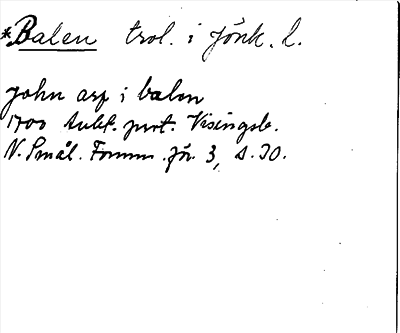 *Balen trol. i Jönk. l.
John asp i balen
1700 avkl. prot. Visingsb.
N. Smål. Fornm. för. 3, s. 30.